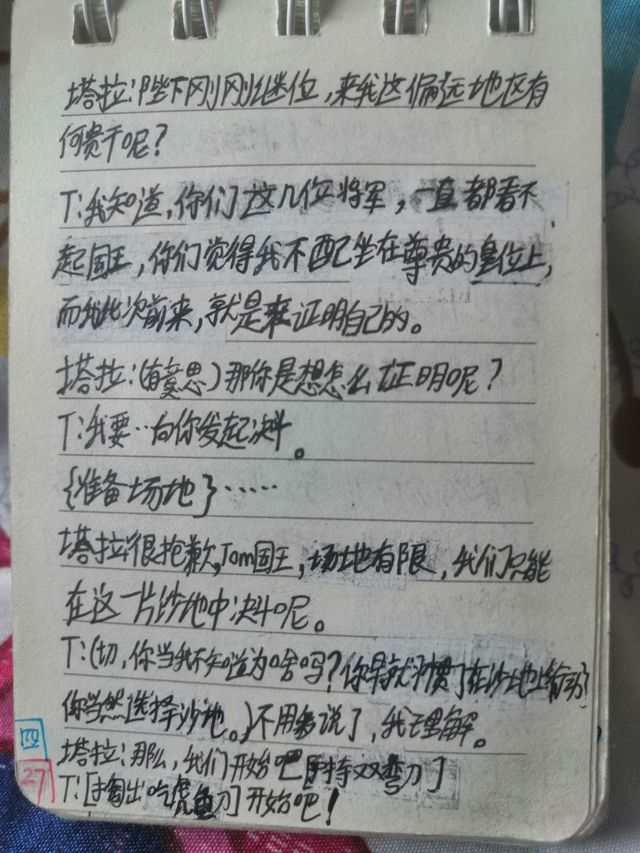 塔拉:陛下刚刚继位,来我这偏远地区有
何贵干呢?
T:我知道,你们这几位将军,一直都看不
起国王,你们觉得我不配坐在尊贵的皇位上,
而我此次前来,就是来证明自己的。
塔拉:(有意思)那你是想怎么证明呢?
T:我要··向你发起决斗。
{准备场地}······
塔拉:很抱歉,Tom国王,场地有限,我们只能
在这一片沙地中决斗呢。
T:(切,你当我不知道为啥吗?你早就习惯了在沙地上
你当然选择沙地。)不用多说了,我理解。
塔拉:那么,我们开始吧[手持双弯刀]
T:[掏出吃虎鱼刀]开始吧!
四
27